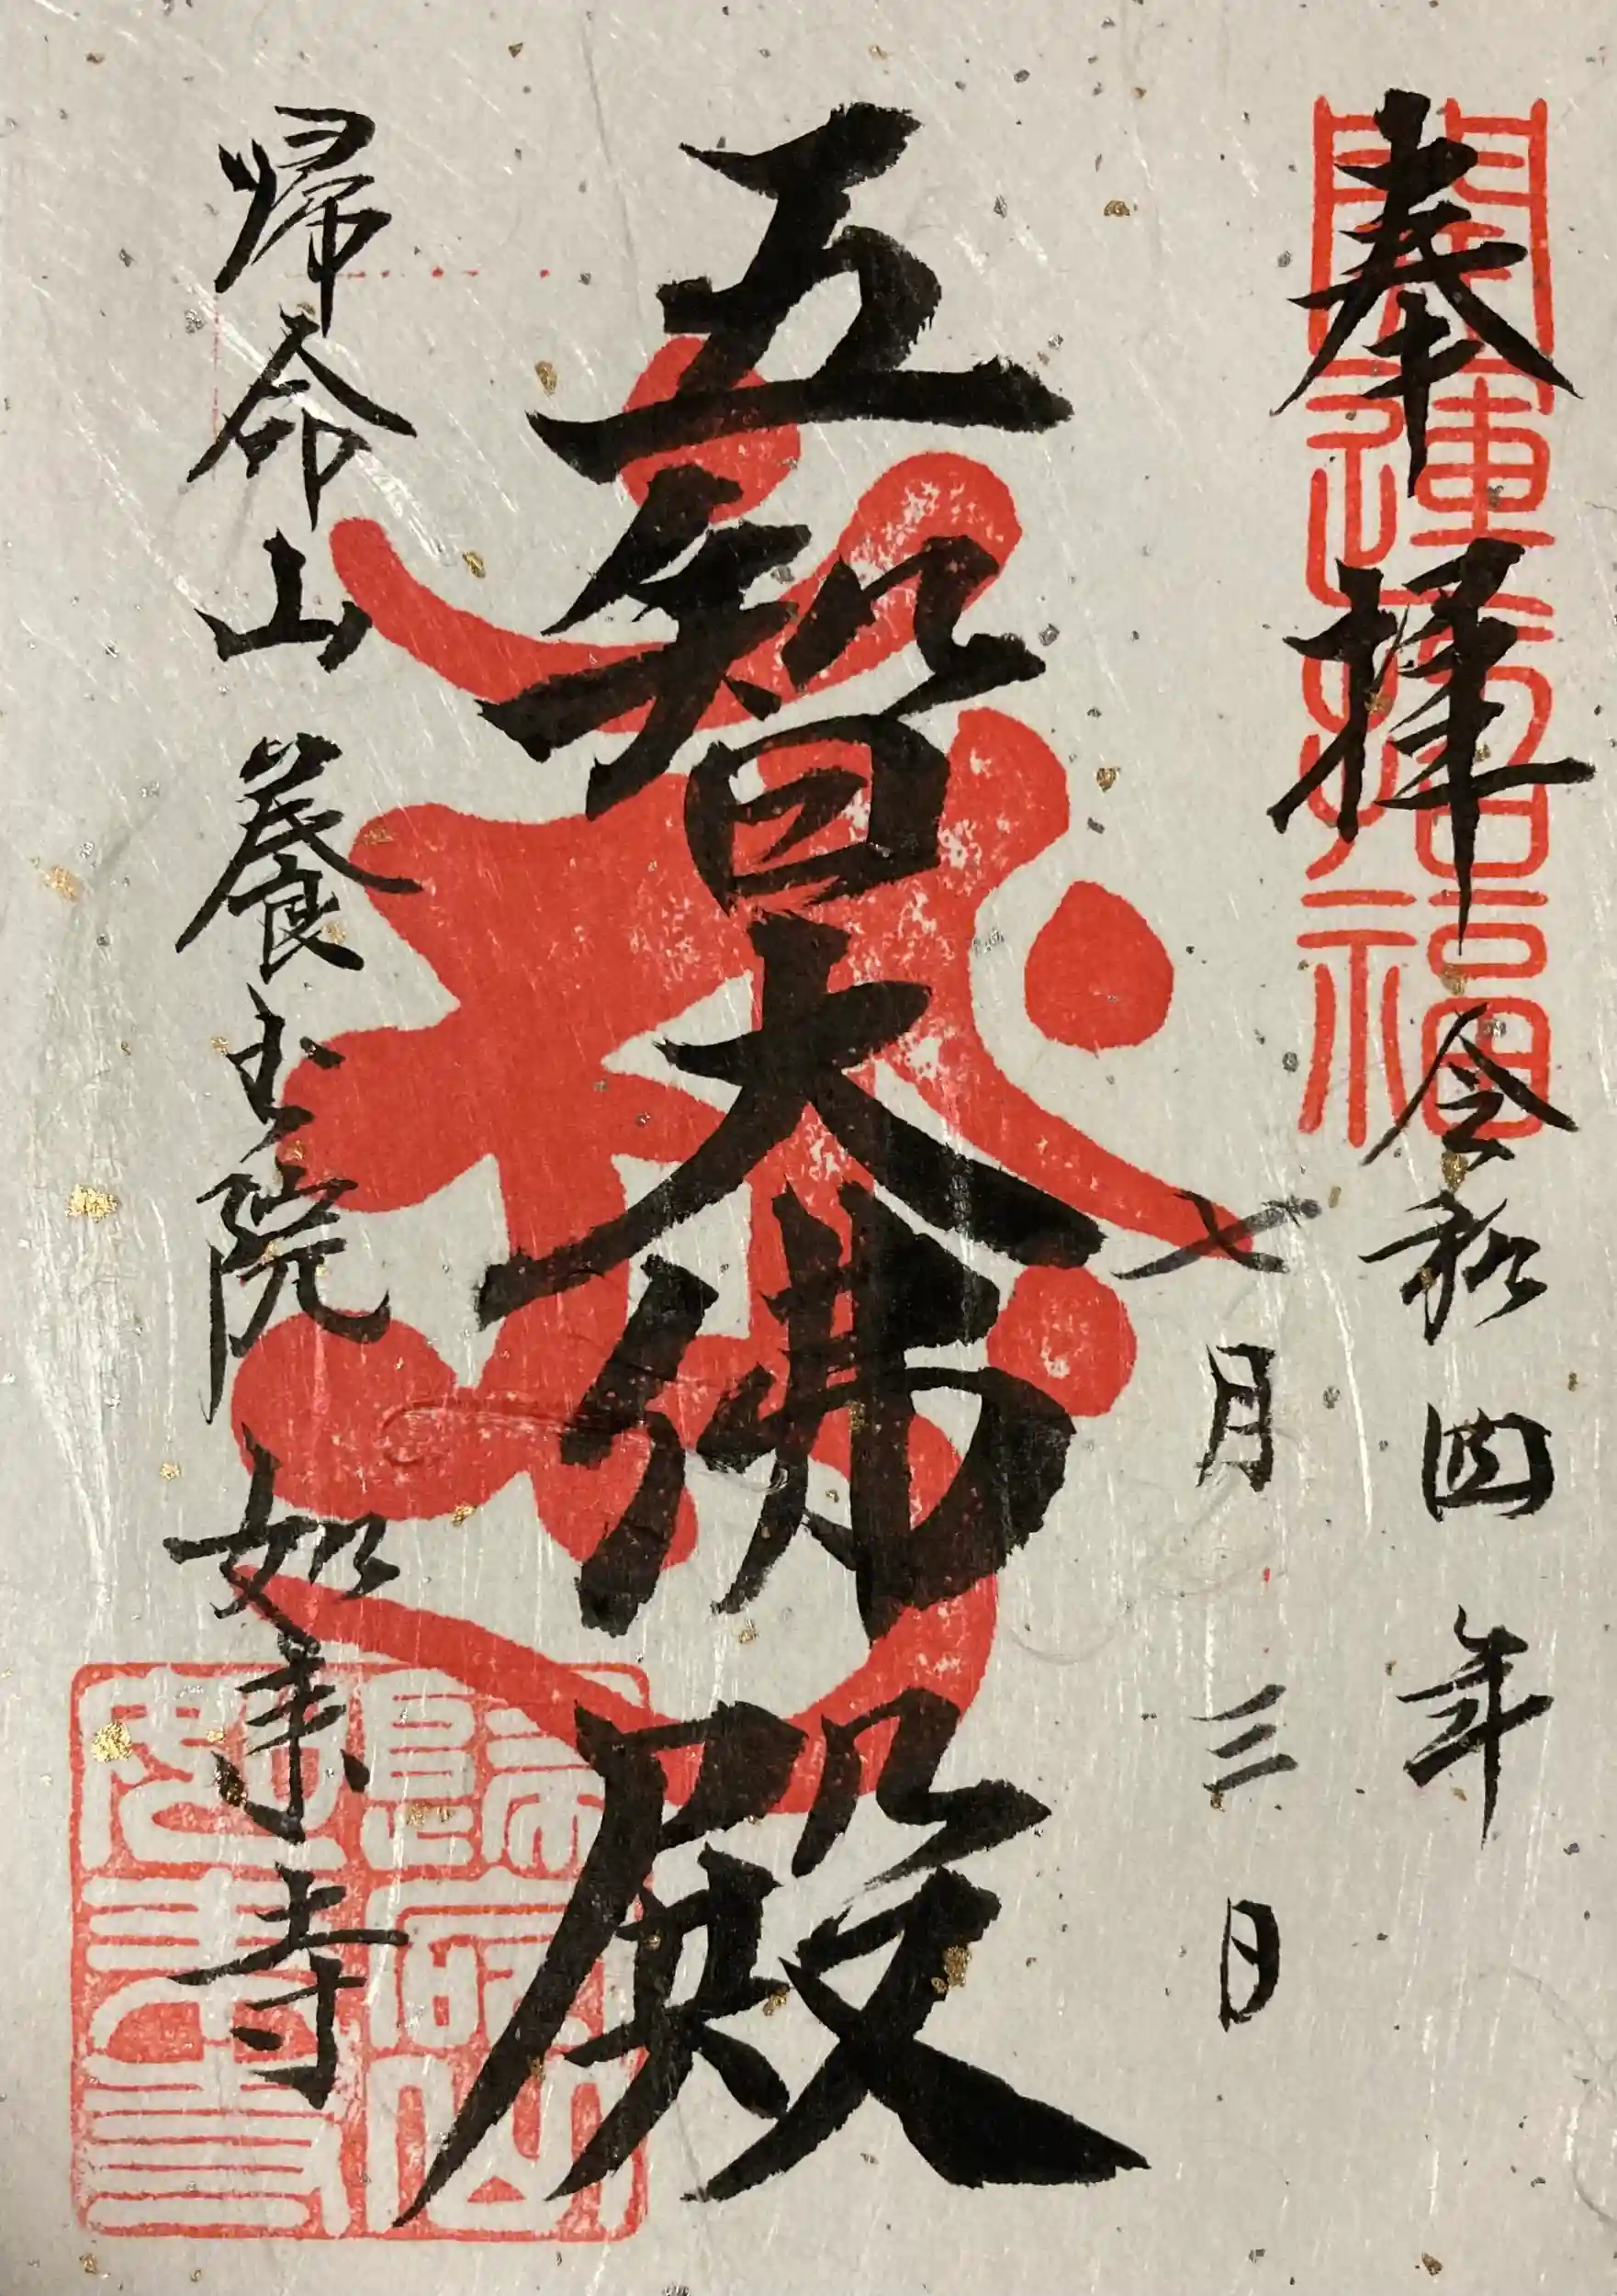 開運招福
奉拝 令和四年
七月三日
五智大佛殿
帰命山 養玉院 如来寺